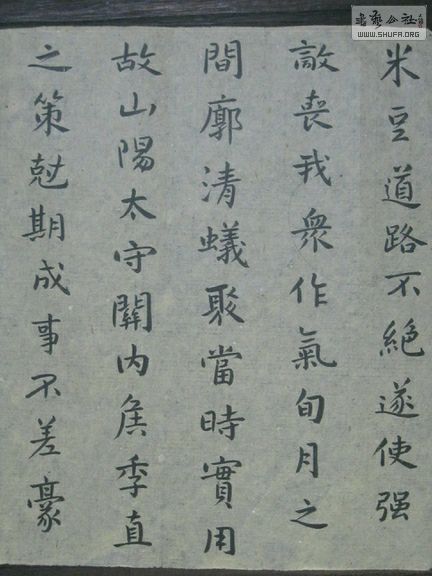 米豆道路不絶遂使强
敵喪我衆作氣旬月之
間廓清蟻聚當時實用
故山陽太守關内矦季直
之策尅期成事不差豪
WWW.SHUFA.ORG